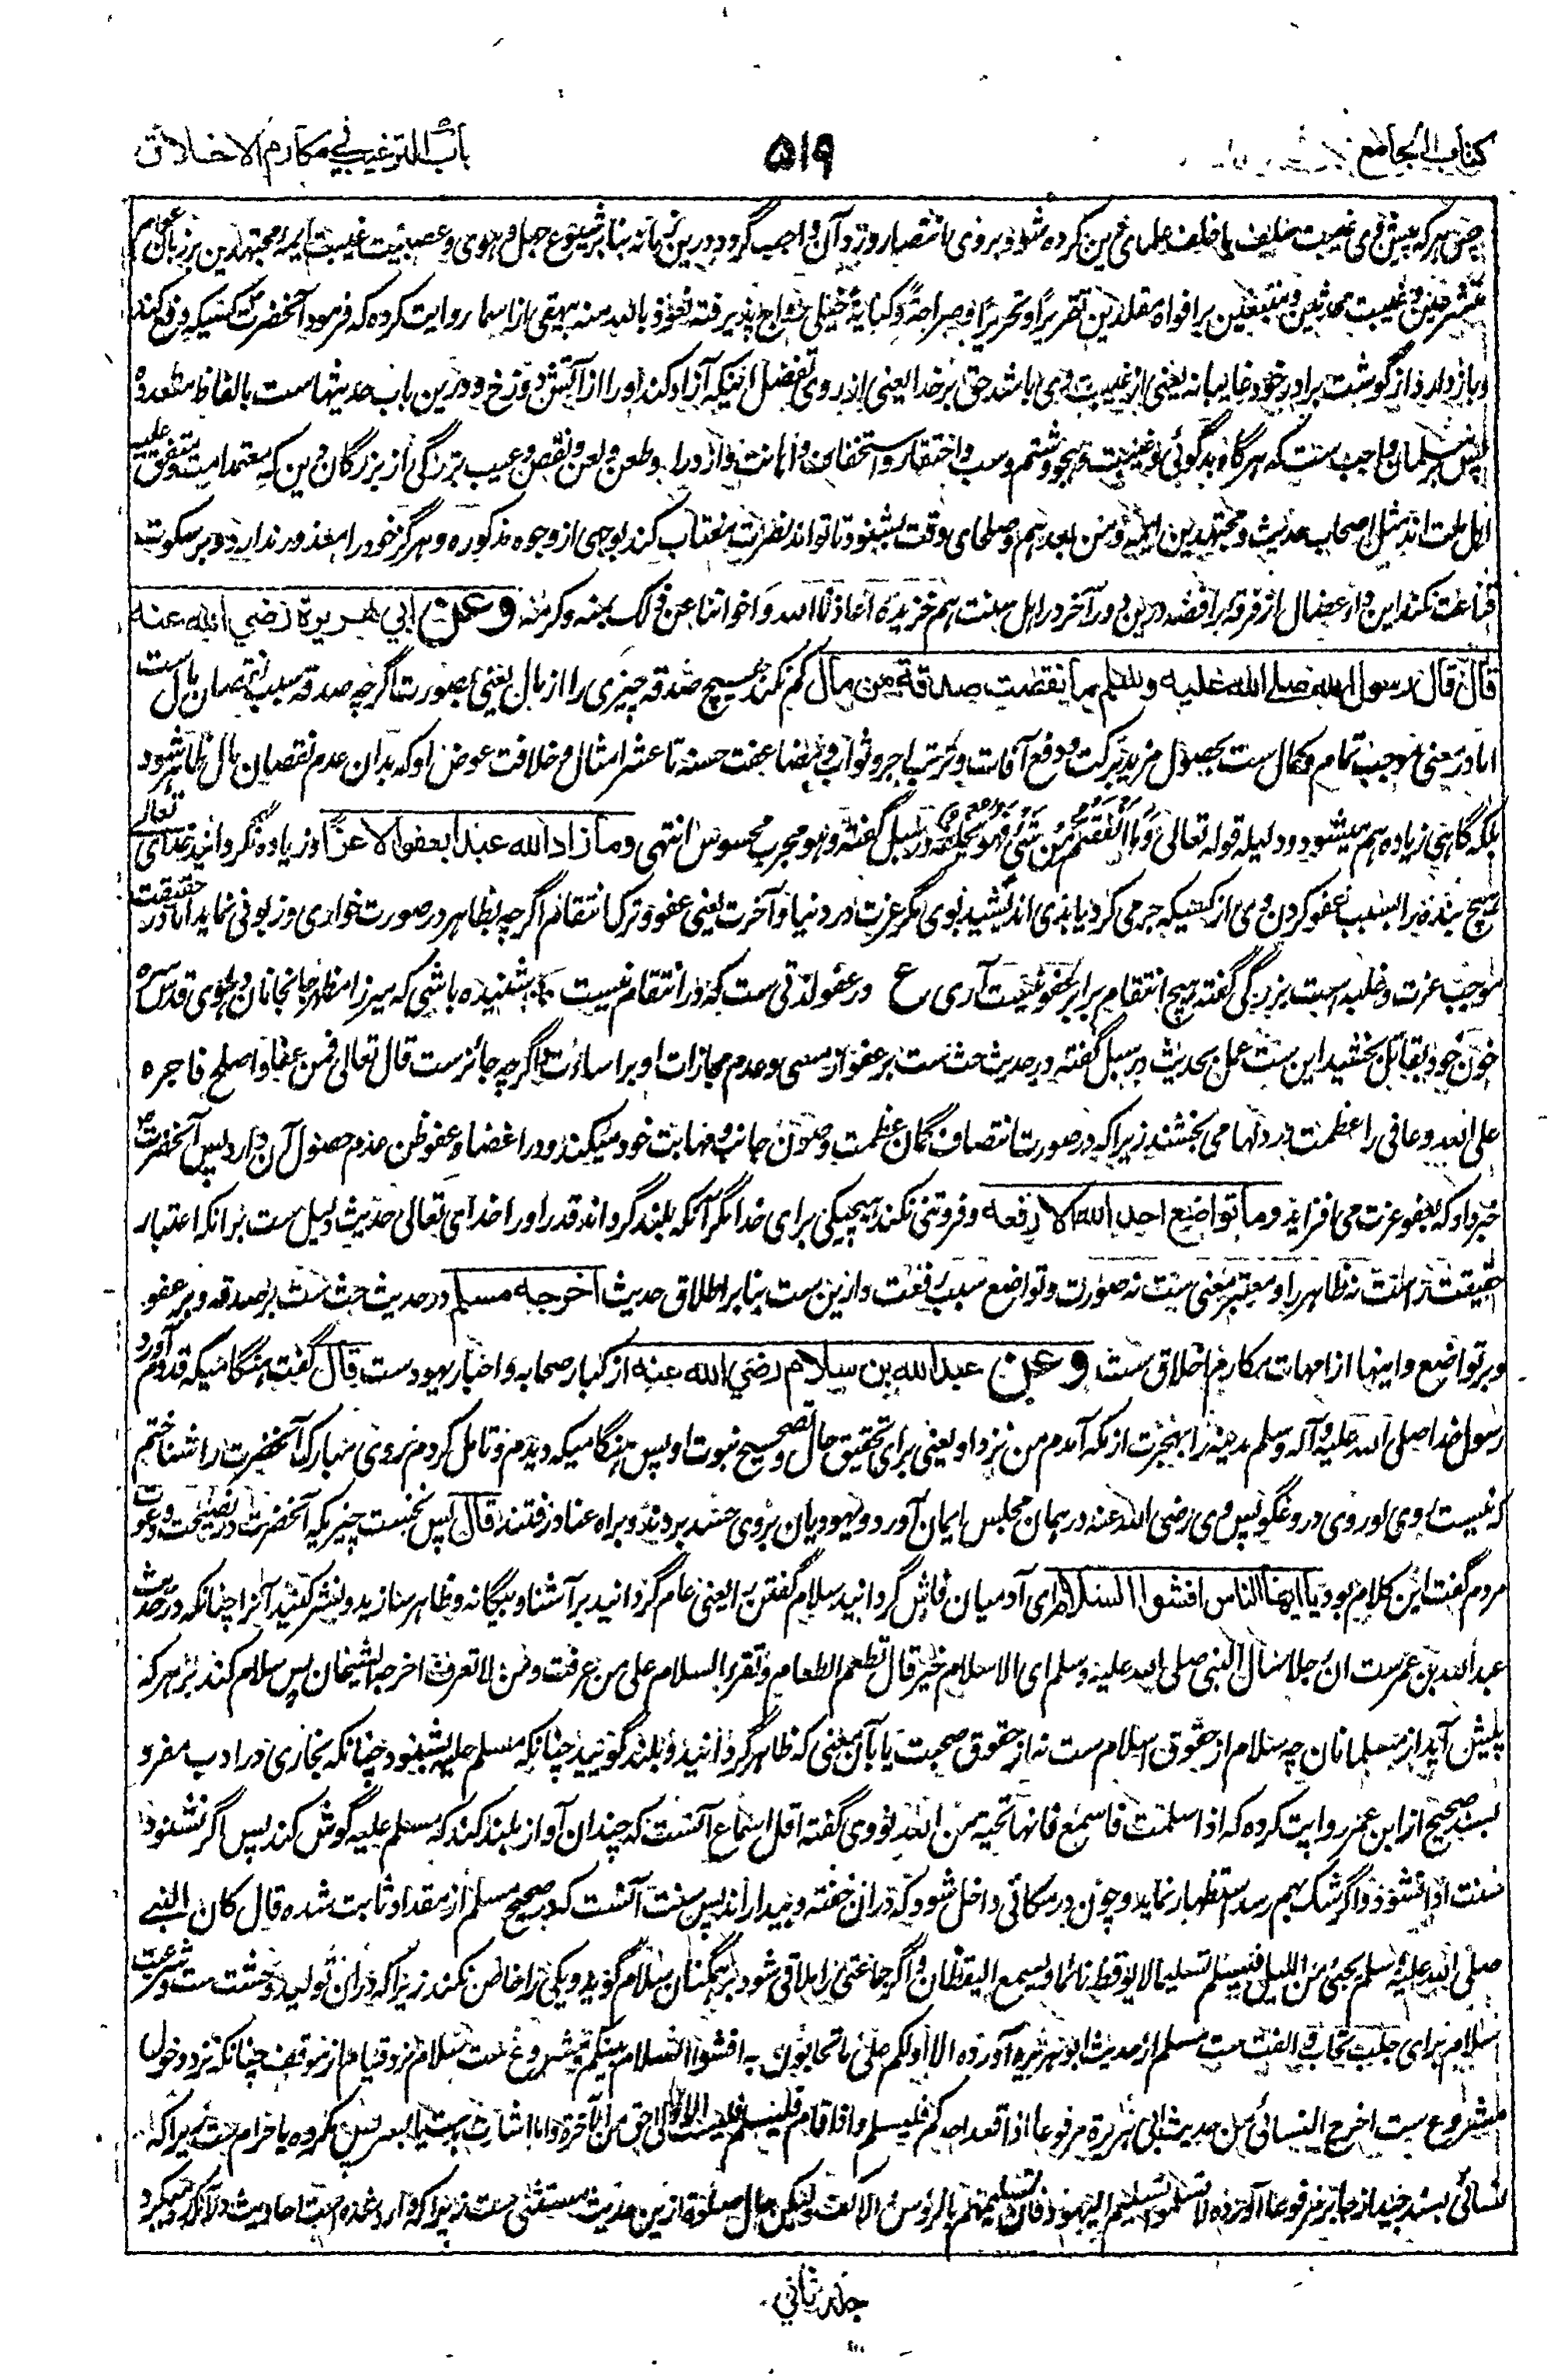 کتاب الجامع
۵۱۹
باب الترغیب في مکارم الاخلاق
هرکه پیش وی غیبت علمای دین کرده شود بر وی انتصار و رد آن واجب گردد درین زمانه بنا بر شیوع جهل و هوی و عصبیت غیبت ایمه مجتهدین بر زبان عوام
و غیبت محدثین و متبعین بر افواه مقلدین تقریرا و تحریرا و صراحة و کنایة خیلی رواج پذیرفته نعوذ بالله منه بیهقی از اسما روایت کرده که فرمود آنحضرت کسیکه دفع کند
و باز دارد از گوشت برادر خود غایبانه یعنی از غیبت وی باشد حق بر خدا یعنی از روی تفضل اینکه آزاد کند او را از آتش دوزخ و درین باب حدیثهاست بالفاظ متعدده
پس بر مسلمان واجب ست که هرگاه بدگوئی و غیبت و هجو و شتم و سب و احتقار و استخفاف و اهانت و ازدرا و طعن و لعن و نقص و عیب بزرگی از بزرگان دین که معتمد امت و متفق علیه
اهل ملت اند مثل اصحاب حدیث و مجتهدین ایمه و من بعدهم و صلحای وقت بشنود تا تواند نصرت مغتاب کند بوجهی از وجوه مذکوره و هرگز خود را معذور ندارد و بر سکوت
قناعت نکند این داء عضال از فرقه رافضه درین دور آخر در اهل سنت هم خزیده اعاذنا الله و اخواننا عن ذلک بمنه و کرمه وعن ابي هريرة رضي الله عنه
قال قال رسول الله صلى الله عليه وسلم ما نقصت صدقة من مال کم نکند هیچ صدقه چیزی را از مال یعنی بصورت اگرچه صدقه سبب نقصان مال ست
اما در معنی موجب تمام و کمال ست بحصول مزید برکت و دفع آفات و ترتب اجر و ثواب و مضاعفت حسنه تا عشر امثال و خلافت عوض او که بدان عدم نقصان مال ظاهر شود
بلکه گاهی زیاده هم میشود و دلیله قوله تعالی وَمَا أَنْفَقْتُمْ مِنْ شَيْءٍ فَهُوَ يُخْلِفُهُ در سبل گفته و هو مجرب محسوس انتهی وما زاد الله عبدا بعفو الا عزا و زیاده نگرداند خدای تعالی
هیچ بنده را بسبب عفو کردن وی از کسیکه جرمی کرد یا بدی اندیشید بوی مگر عزت در دنیا و آخرت یعنی عفو و ترک انتقام اگرچه بظاهر در صورت خواری و زبونی نماید اما در حقیقت
موجب عزت و غلبه است بزرگی گفته هیچ انتقام برابر عفو نیست آری ع در عفو لذتی ست که در انتقام نیست شنیده باشی که میرزا مظهر جانجانان دهلوی قدس سره
خون خود بقاتل بخشید این ست عمل بحدیث در سبل گفته در حدیث حث ست بر عفو از مسی و عدم مجازات او بر اساءت اگرچه جائز ست قال تعالی فمن عفا و اصلح فاجره
علی الله و عافی را عظمت در دلها می بخشند زیراکه در صورت انتصاف گمان عظمت و صون جانب و مهابت خود میکند و در اغضا و عفو ظن عدم حصول آن دارد پس آنحضرت
خبر داد که بعفو عزت می افزاید وما تواضع احد لله الا رفعه و فروتنی نکند هیچیکی برای خدا مگر آنکه بلند گرداند قدر او را خدای تعالی حدیث دلیل ست برانکه اعتبار
حقیقت راست نه ظاهر را و معتبر معنی ست نه صورت و تواضع سبب رفعت دارین ست بنا بر اطلاق حدیث اخرجه مسلم در حدیث حث ست بر صدقه و بر عفو
و بر تواضع و اینها از امهات مکارم اخلاق ست وعن عبدالله بن سلام رضي الله عنه از کبار صحابه و احبار یهود ست قال گفت هنگامیکه قدوم آورد
رسول خدا صلی الله علیه و آله و سلم مدینه را بهجرت از مکه آمدم من نزد او یعنی برای تحقیق حال و تصحیح نبوت او پس هنگامیکه دیدم و تامل کردم روی مبارک آنحضرت را شناختم
که نیست روی او روی دروغگو پس وی رضی الله عنه در همان مجلس ایمان آورد و یهودیان بر وی حسد بردند و براه عناد رفتند قال پس نخست چیزیکه آنحضرت در نصیحت و دعوت
مردم گفت این کلام بود یا ایها الناس افشوا السلام ای آدمیان فاش گردانید سلام گفتن را یعنی عام گردانید بر آشنا و بیگانه و ظاهر سازید و نشر کنید آنرا چنانکه در حدیث
عبدالله بن عمر ست ان رجلا سال النبی صلی الله علیه و سلم ای الاسلام خیر قال تطعم الطعام و تقرء السلام علی من عرفت و من لا تعرف اخرجه الشیخان پس سلام کند بر هرکه
پیش آید از مسلمانان چه سلام از حقوق اسلام ست نه از حقوق صحبت یا بآن معنی که ظاهر گردانید و بلند گویید چنانکه مسلم علیه بشنود چنانکه بخاری در ادب مفرد
بسند صحیح از ابن عمر روایت کرده که اذا سلمت فاسمع فانها تحیة من الله نووی گفته اقل اسماع آنست که چندان آواز بلند کند که مسلم علیه گوش کند پس اگر نشنود
سنت ادا نشود و اگر شک بهم رسد استظهار نماید و چون در مکانی داخل شود که دران خفته و بیدار اند پس سنت آنست که در صحیح مسلم از مقداد ثابت شده قال کان النبی
صلی الله علیه و سلم یجیئ من اللیل فیسلم تسلیما لا یوقظ نائما و یسمع الیقظان و اگر جماعتی را ملاقی شود بر همگنان سلام گوید و یکی را خاص نکند زیراکه دران تولید وحشت ست و شرعیت
سلام برای جلب تحاب و الفت ست مسلم از حدیث ابوهریره آورده الا ادلکم علی ما تحابون به افشوا السلام بینکم و مشروع ست سلام نزد قیام از موقف چنانکه نزد دخول
مشروع ست اخرج النسائی من حدیث ابی هریرة مرفوعا اذا قعد احدکم فلیسلم و اذا قام فلیسلم فلیست الاولی احق من الآخرة و اما اشارت بدست یا بسر پس مکروه یا حرام ست زیراکه
نسائی بسند جید از جابر مرفوعا آورده لا تسلموا تسلیم الیهود فان تسلیمهم بالرؤس و الاکف ولیکن حال صلوة ازین حدیث مستثنی ست زیراکه وارد شده است احادیث
جلد ثانی